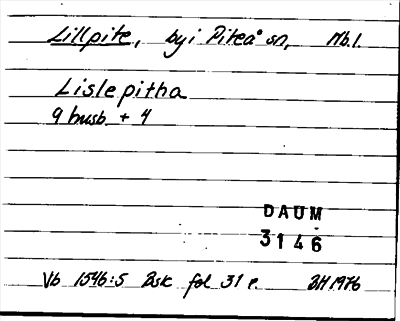 Lillpite, by i Piteå sn, Nb.l.
Lislepitha
9 husb. + 4
DAUM
3146
Vb 1546:5 Bsk fol 31 r. BH 1976